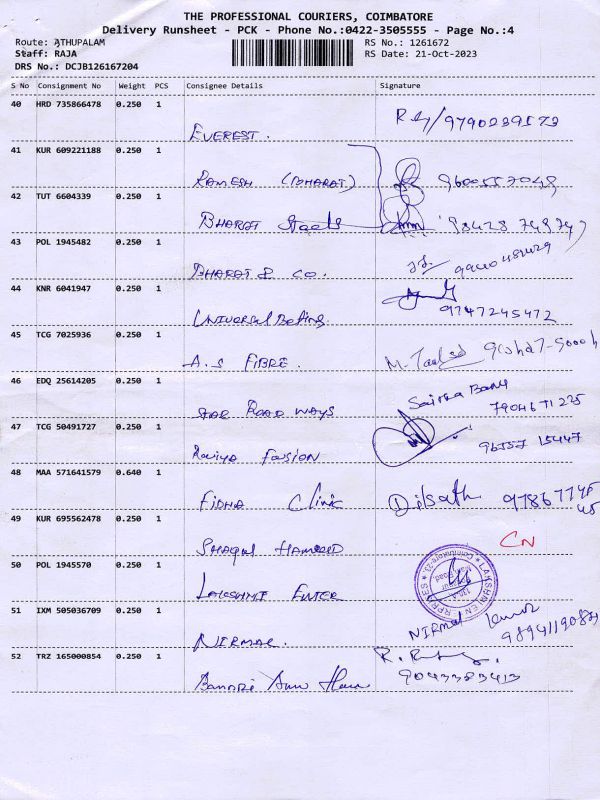 THE PROFESSIONAL COURIERS, COIMBATORE
Delivery Runsheet - PCK - Phone No.:0422-3505555 - Page No.:4
Route: ATHUPALAM
RS No.: 1261672
Staff: RAJA
RS Date: 21-Oct-2023
DRS No.: DCJB126167204
S No Consignment No Weight PCS Consignee Details Signature
40 HRD 735866478 0.250 1
EVEREST. 9790239573
41 KUR 609221188 0.250 1
RAMESH (BHARAT) 9600557049
42 TUT 6604339 0.250 1
BHARAT Steels
43 POL 1945482 0.250 1
BHARAT & CO.
44 KNR 6041947 0.250 1
UNIVERSAL Belting 9747245472
45 TCG 7025936 0.250 1
A.S FIBRE.
46 EDQ 25614205 0.250 1
STAR ROAD WAYS Sairaa Banu
7904671225
47 TCG 50491727 0.250 1
FUSION 96557 15447
48 MAA 571641579 0.640 1
FIDHA Clinic Dilsath
49 KUR 695562478 0.250 1
SHAQUL HAMEED CN
50 POL 1945570 0.250 1
LAKSHMI ENTER
51 IXM 505036709 0.250 1
NIRMAL. NIRMAL Kumar
52 TRZ 165000854 0.250 1
BANARI 9043383413